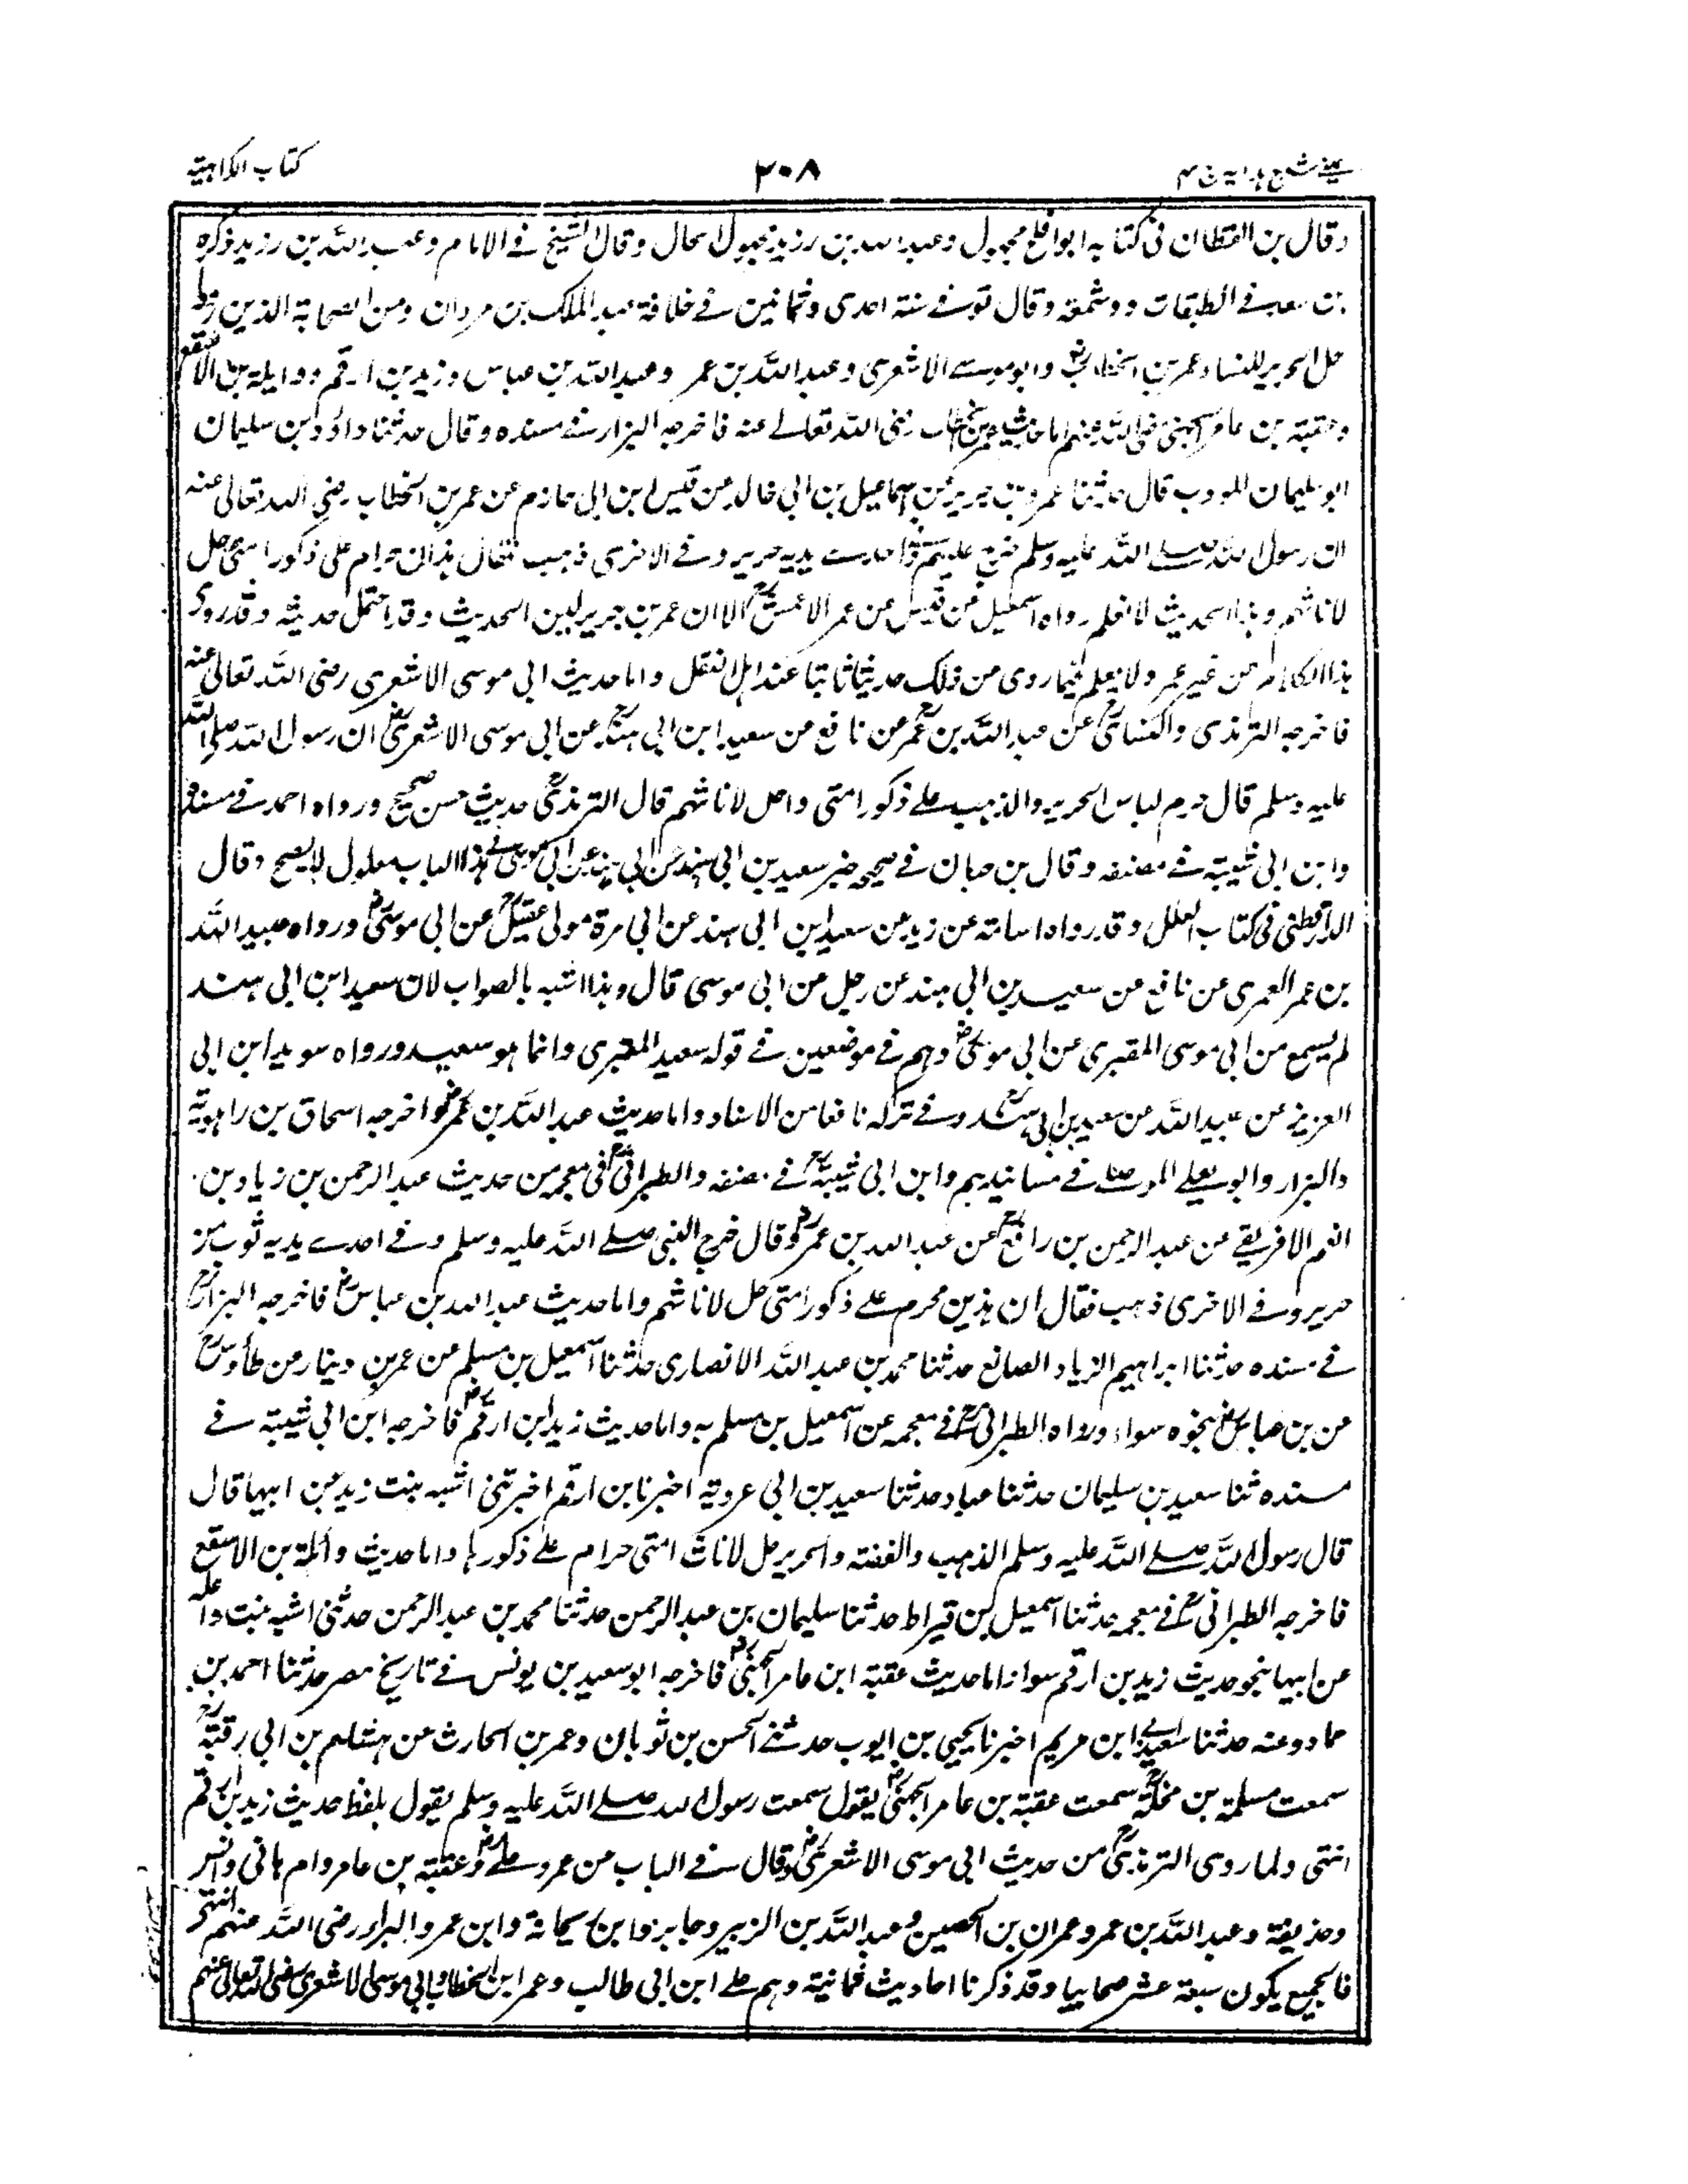 عینی شرح ہدایہ ج ۴
۲۰۸
كتاب الكراهية
وقال بن القطان فى كتابه ابو افلح مجهول وعبد الله بن رزيد مجهول الحال وقال الشيخ فے الامام وعبد الله بن رزيد ذكره
بن سعد فے الطبقات ووثقه وقال توفے سنة احدى وثمانين فے خلافة عبد الملك بن مروان ومن الصحابة الذين
حل الحرير للنساء عمر بن الخطاب وابو موسے الاشعرى وعبد الله بن عمر وعبد الله بن عباس وزيد بن ارقم ووايلة بن الاسقع
وعقبة بن عامر الجهنى رضى الله عنهم اما حديث عمر بن الخطاب رضى الله تعالے عنه فاخرجه البزار فے مسنده وقال حدثنا داؤد بن سليمان
ابو سليمان المودب قال حدثنا عمرو بن جرير عن اسماعيل بن ابى خالد عن قيس ابن ابى حازم عن عمر بن الخطاب رضى الله تعالى عنه
ان رسول الله صلے الله عليه وسلم خرج عليهم وفى احدے يديه حرير وفے الاخرى ذهب فقال هذان حرام على ذكور امتى حل
لاناثهم وهذا الحديث لا نعلم رواه اسمعيل عن قيس عن عمر الا عمر الا ان عمر بن جرير لين الحديث وقد احتمل حديثه وقد روى
هذا الكلام من غير عمر ولا يعلم فيما روى من ذلك حديثا ثابتا عند اهل النقل واما حديث ابى موسى الاشعرى رضى الله تعالى عنه
فاخرجه الترمذى والنسائى عن عبد الله بن عمر عن نافع عن سعيد ابن ابى هند عن ابى موسى الاشعرى ان رسول الله صلى الله
عليه وسلم قال حرم لباس الحرير والذهب علے ذكور امتى واحل لاناثهم قال الترمذى حديث حسن صحيح ورواه احمد فے مسنده
وابن ابى شيبة فے مصنفه وقال بن حبان فے صحيحه خبر سعيد بن ابى هند عن ابى موسى فے هذا الباب معلول لا يصح وقال
الدارقطنى فى كتاب العلل وقد رواه اسامة عن زيد عن سعيد ابن ابى هند عن ابى مرة مولى عقيل عن ابى موسى ورواه عبيد الله
بن عمر العمرى عن نافع عن سعيد بن ابى هند عن رجل عن ابى موسى قال وهذا اشبه بالصواب لان سعيد ابن ابى هند
لم يسمع من ابى موسى المقبرى عن ابى موسى وهم فے موضعين فے قوله سعيد المقبرى وانما هو سعيد ورواه سويد ابن ابى
العزيز عن عبيد الله عن سعيد بن ابى هند وفے تركه نافعا من الاسناد واما حديث عبد الله بن عمرو اخرجه اسحاق بن راهوية
والبزار وابو يعلے الموصلے فے مسانيدهم وابن ابى شيبة فے مصنفه والطبرانى فى معجمه من حديث عبد الرحمن بن زياد بن
انعم الافريقے عن عبد الرحمن بن رافع عن عبد الله بن عمرو قال خرج النبى صلے الله عليه وسلم وفے احدے يديه ثوب من
حرير وفے الاخرى ذهب فقال ان هذين محرم علے ذكور امتى حل لاناثهم واما حديث عبد الله بن عباس فاخرجه البزار
فے مسنده حدثنا ابراهيم الزياد الصانع حدثنا محمد بن عبد الله الانصارى حدثنا اسمعيل بن مسلم عن عمر بن دينار عن طاؤس
عن بن عباس نحوه سواء ورواه الطبرانى فے معجمه عن اسمعيل بن مسلم به واما حديث زيد ابن ارقم فاخرجه ابن ابى شيبة فے
مسنده ثنا سعيد بن سليمان حدثنا عباد حدثنا سعيد بن ابى عروبة اخبرنا بن ارقم اخبرتنى انيسه بنت زيد عن ابيها قال
قال رسول الله صلے الله عليه وسلم الذهب والفضة والحرير حل لاناث امتى حرام علے ذكورها واما حديث واثلة بن الاسقع
فاخرجه الطبرانى فے معجمه حدثنا اسمعيل بن قيراط حدثنا سليمان بن عبد الرحمن حدثنا محمد بن عبد الرحمن حدثنى اشبه بنت واثلة
عن ابيها نحو حديث زيد بن ارقم سواء اما حديث عقبة ابن عامر الجهنى فاخرجه ابو سعيد بن يونس فے تاريخ مصر حدثنا احمد بن
حماد وعنه حدثنا سعيد ابن ابے مريم اخبرنا يحيى بن ايوب حدثنے الحسن بن ثوبان وعمر بن الحارث عن هشام بن ابى رقية
سمعت مسلمة بن مخلد سمعت عقبة بن عامر الجهنى يقول سمعت رسول الله صلے الله عليه وسلم يقول بلفظ حديث زيد بن ارقم
انتهى ولما روى الترمذى من حديث ابى موسى الاشعرى وقال فے الباب عن عمر وعلے وعقبة بن عامر وام هانى وانس
وحذيفة وعبد الله بن عمرو عمران بن الحصين وعبد الله بن الزبير وجابر وابن ريحانة وابن عمر والبراء رضى الله عنهم انتهى
فالجميع يكون سبعة عشر صحابيا وقد ذكرنا احاديث ثمانية وهم علے ابن ابى طالب وعمر ابن الخطاب وابى موسى الاشعرى رضى الله تعالى عنهم